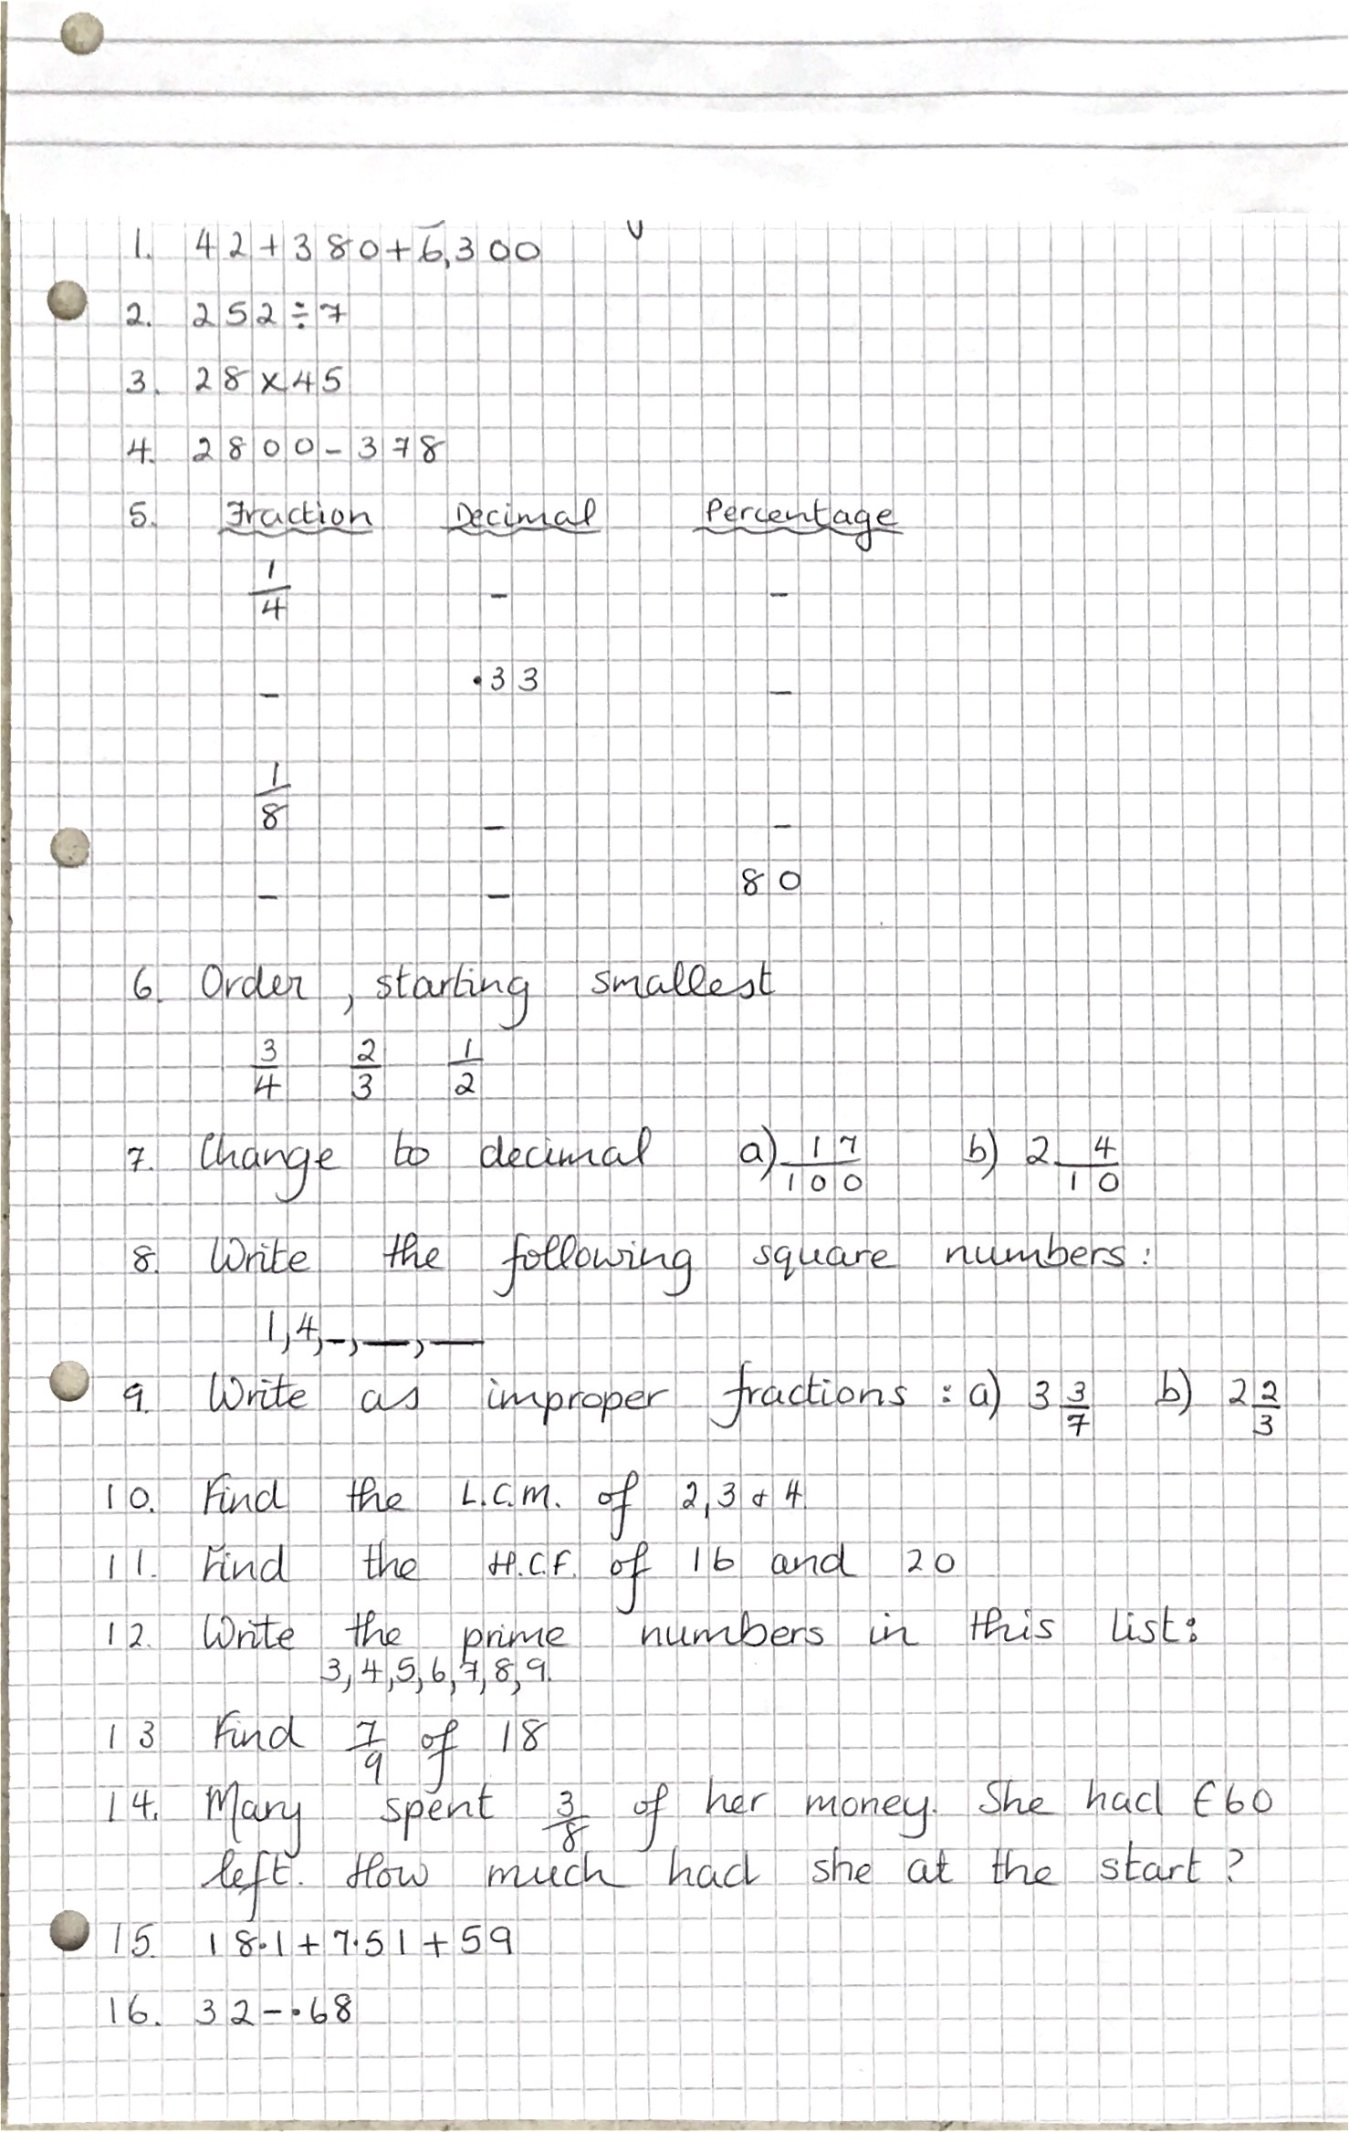 1. 42+380+6,300
2. 252÷7
3. 28×45
4. 2800-378
5. Fraction Decimal Percentage
1/4 - -
- .33 -
1/8 - -
- - 80
6. Order, starting smallest
3/4 2/3 1/2
7. Change to decimal a) 17/100 b) 2 4/10
8. Write the following square numbers:
1,4,_,__,__
9. Write as improper fractions: a) 3 3/7 b) 2 2/3
10. Find the L.C.M. of 2,3 & 4
11. Find the H.C.F. of 16 and 20
12. Write the prime numbers in this list:
3,4,5,6,7,8,9.
13 Find 7/9 of 18
14. Mary spent 3/8 of her money. She had €60
left. How much had she at the start?
15. 18.1+7.51+59
16. 32-.68